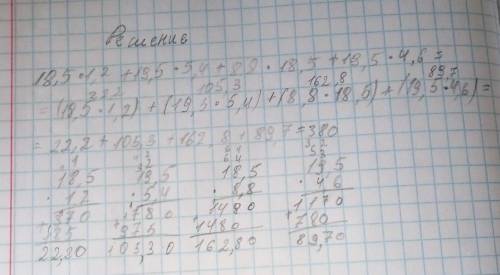 Решение
18,5·1,2 + 19,5·5,4 + 8,8·18,5 + 19,5·4,6 =
22,2 105,3 162,8 89,7
= (18,5·1,2) + (19,5·5,4) + (8,8·18,5) + (19,5·4,6) =
= 22,2 + 105,3 + 162,8 + 89,7 = 380
18,5 19,5 18,5 19,5
· 1,2 · 5,4 · 8,8 · 4,6
370 780 1480 1170
185 975 1480 780
22,20 105,30 162,80 89,70